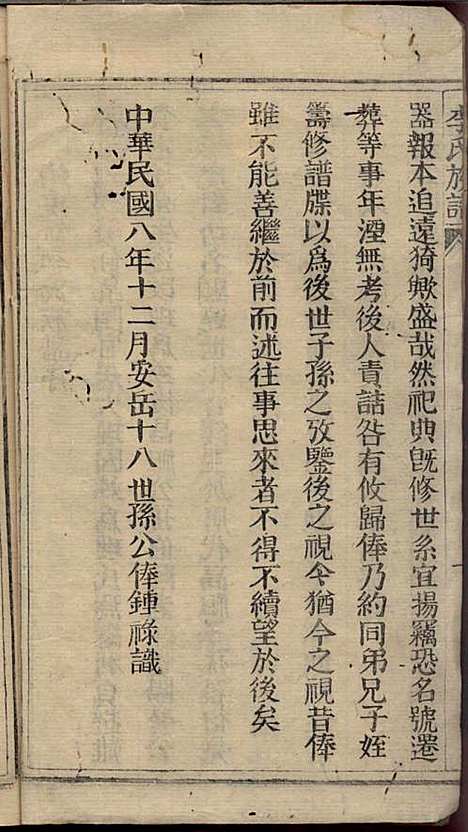 李氏族譜
器報本追遠猗歟盛哉然祀典既修世系宜揚竊恐名號遷
葬等事年湮無考後人責詰咎有攸歸俸乃約同弟兄子姪
籌修譜牒以為後世子孫之攷鑒後之視今猶今之視昔俸
雖不能善繼於前而述往事思來者不得不續望於後矣
中華民國八年十二月安岳十八世孫公俸鍾祿識